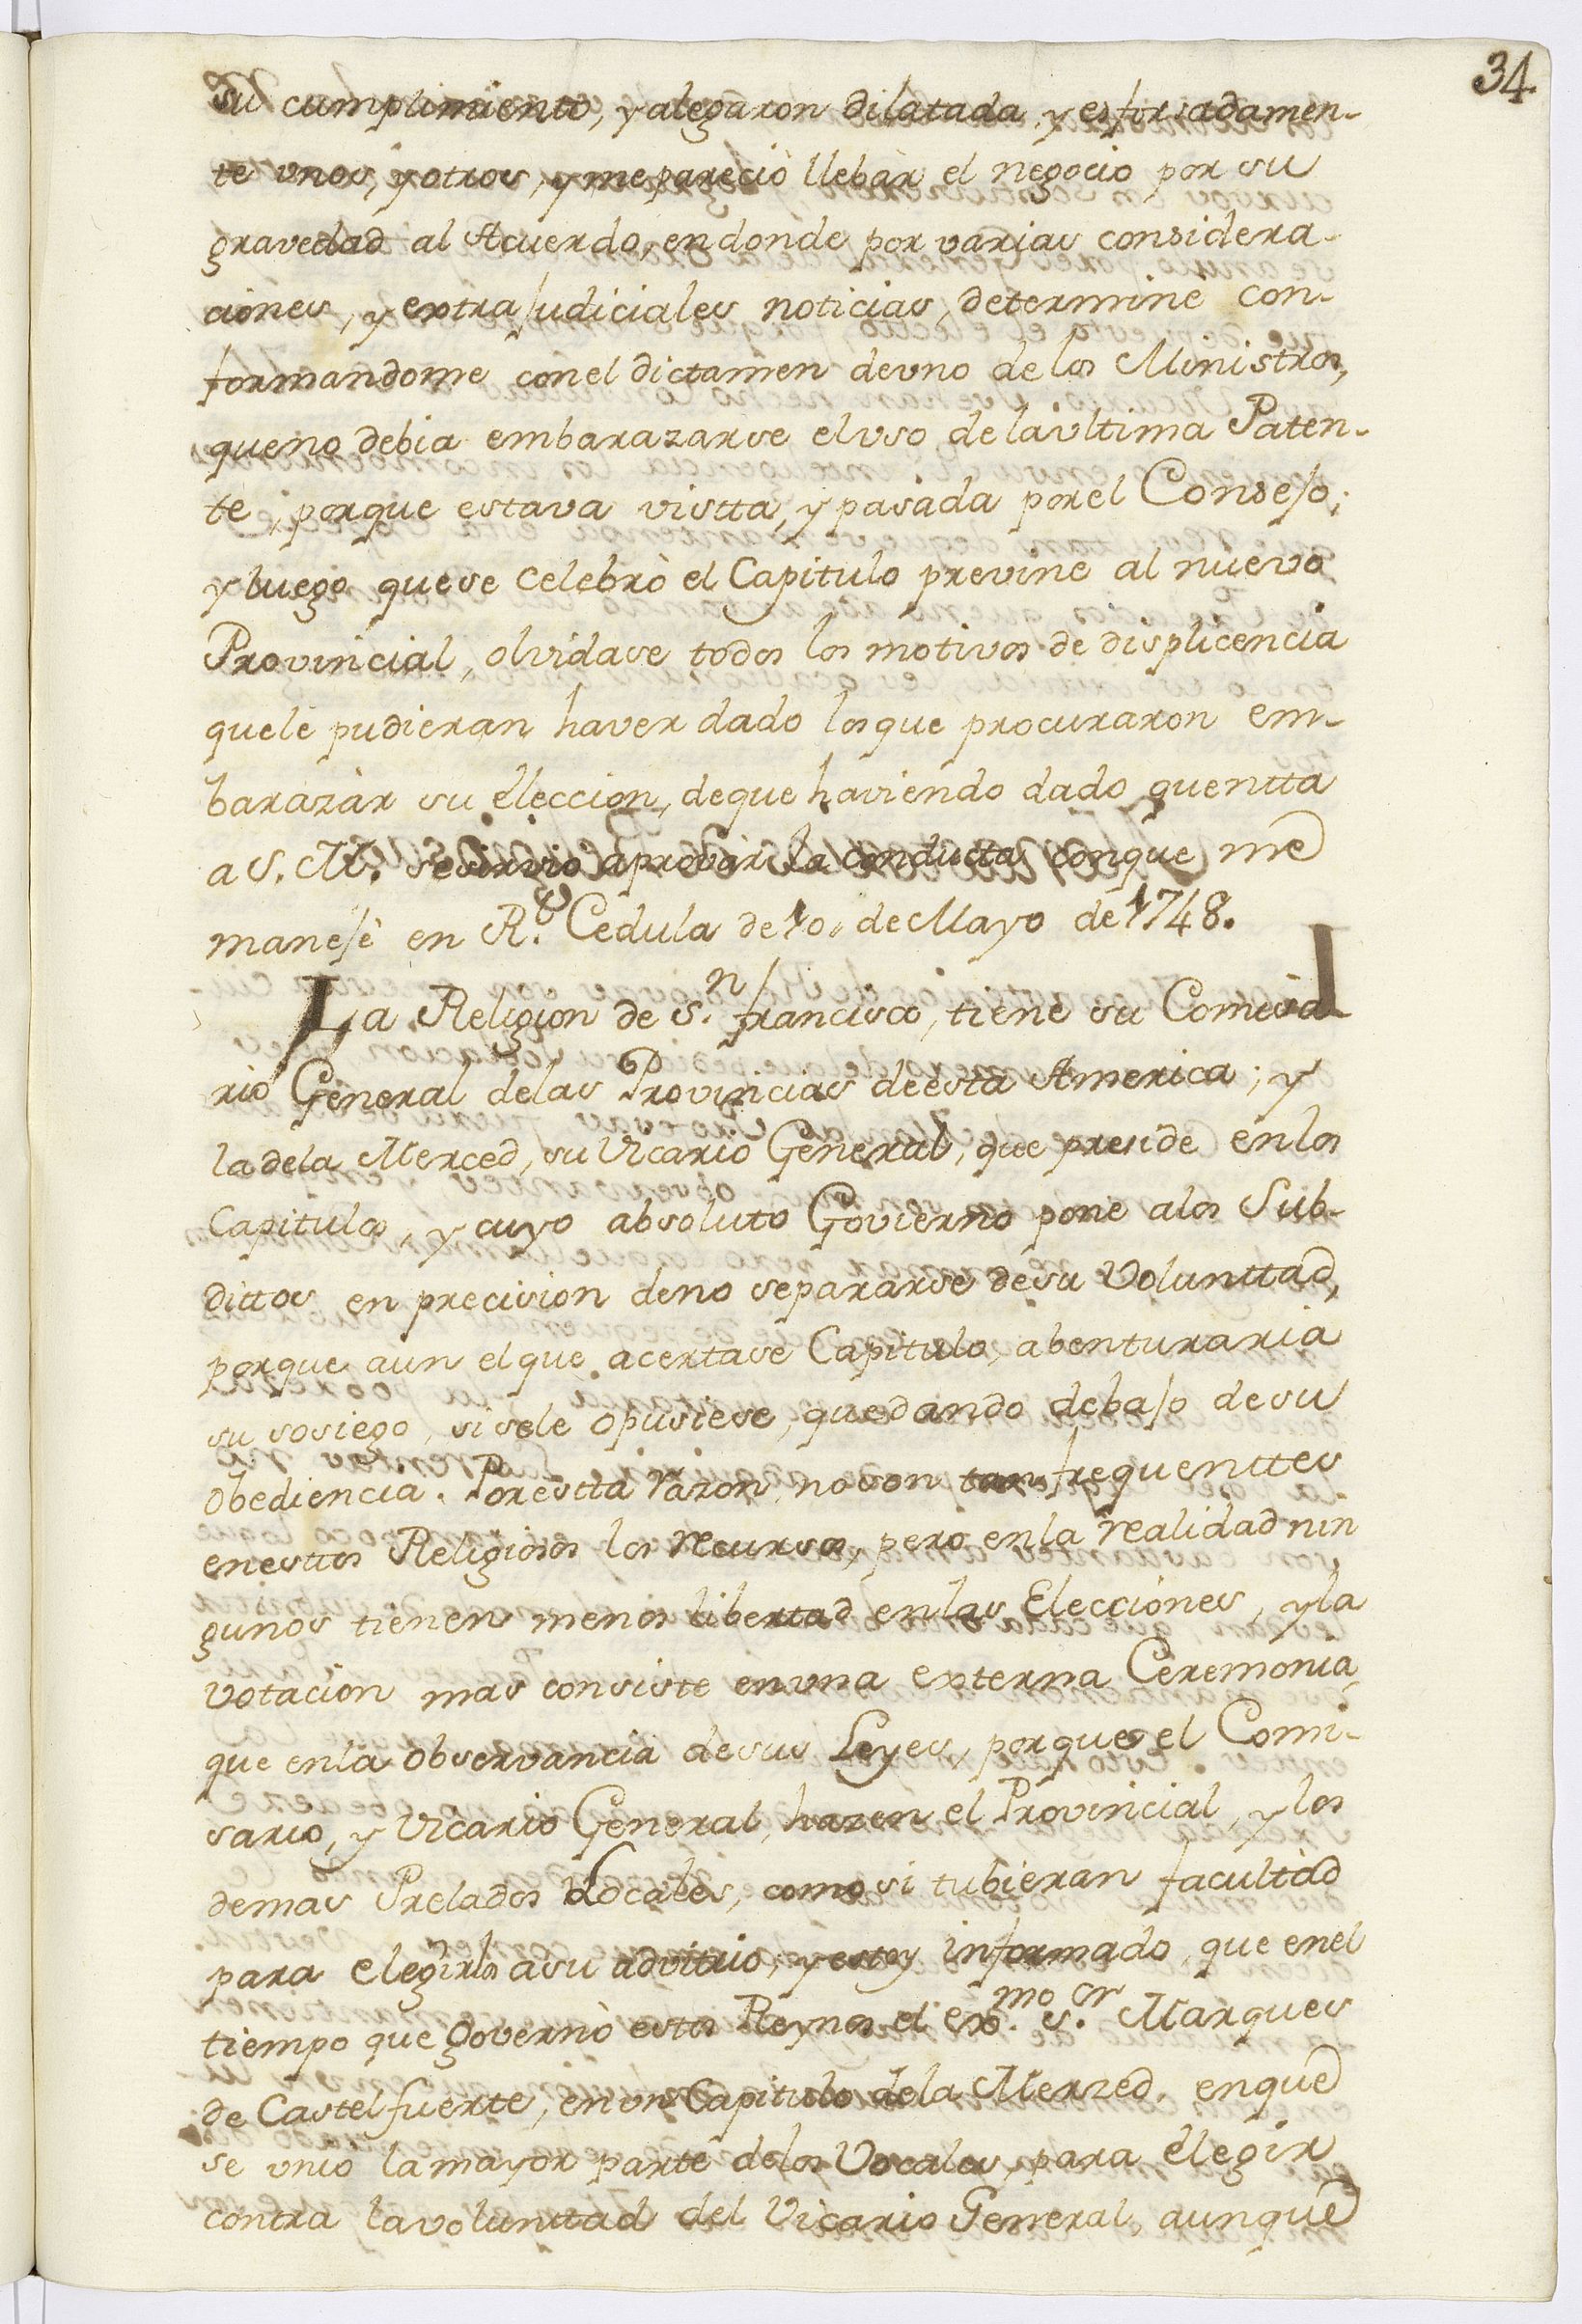 34.
su cumplimiento, y alegaron dilatada, y esforsadamen-
te unos, y otros, y me pareciò llebàr el negocio por su
gravedad al Acuerdo, en donde por varias considera-
ciones, y extrajudiciales noticias, determinè con-
formandome con el dictamen de uno de los Ministros,
que no debia embarazarse el uso de la ultima Paten-
te, porque estava vistta, y pasada por el Consejo;
y luego que se celebrò el Capitulo previne al nuevo
Provincial, olvidase todos los motivos de displicencia
que le pudieran haver dado los que procuraron em-
barazàr su eleccion, de que haviendo dado quentta
a S. M. se sirviò aprobàr la conducta con que me
manejè en R.l Cedula de 10, de Mayo de 1748.
La Religion de S.n Francisco, tiene su Comisa
rio General de las Provincias de esta America; y
la de la Merced, su Vicario General, que preside en los
Capitulos, y cuyo absoluto Govierno pone a los Sub-
dittos en precision de no separarse de su Volunttad,
porque aun el que acertase Capitulo, abenturaria
su sosiego, si se le opusiese, quedando debajo de su
obediencia. Por estta razon, no son tan frequenttes
en esttos Religiosos los recursos, pero en la realidad nin
gunos tienen menos libertad en las Elecciones, y la
votacion mas consiste en una externa Ceremonia,
que en la observancia de sus Leyes, porque el Comi-
sario, y Vicario General, hazen el Provincial, y los
demas Prelados Locales, como si tubieran facultad
para elegirlos a su advitrio, y estoy informado, que en el
tiempo que governò estos Reynos el exmo. s.or Marques
de Castelfuerte, en un Capitulo de la Merzed, en que
se unio la mayor parte de los Vocales, para elegir
contra la volunttad del Vicario General, aunque